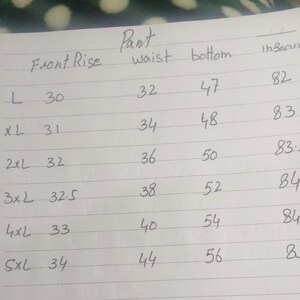 Pant
Front Rise waist bottom
L 30 32 47 82
XL 31 34 48 83
2XL 32 36 50 83.
3XL 32.5 38 52 84
4XL 33 40 54 84
5XL 34 44 56